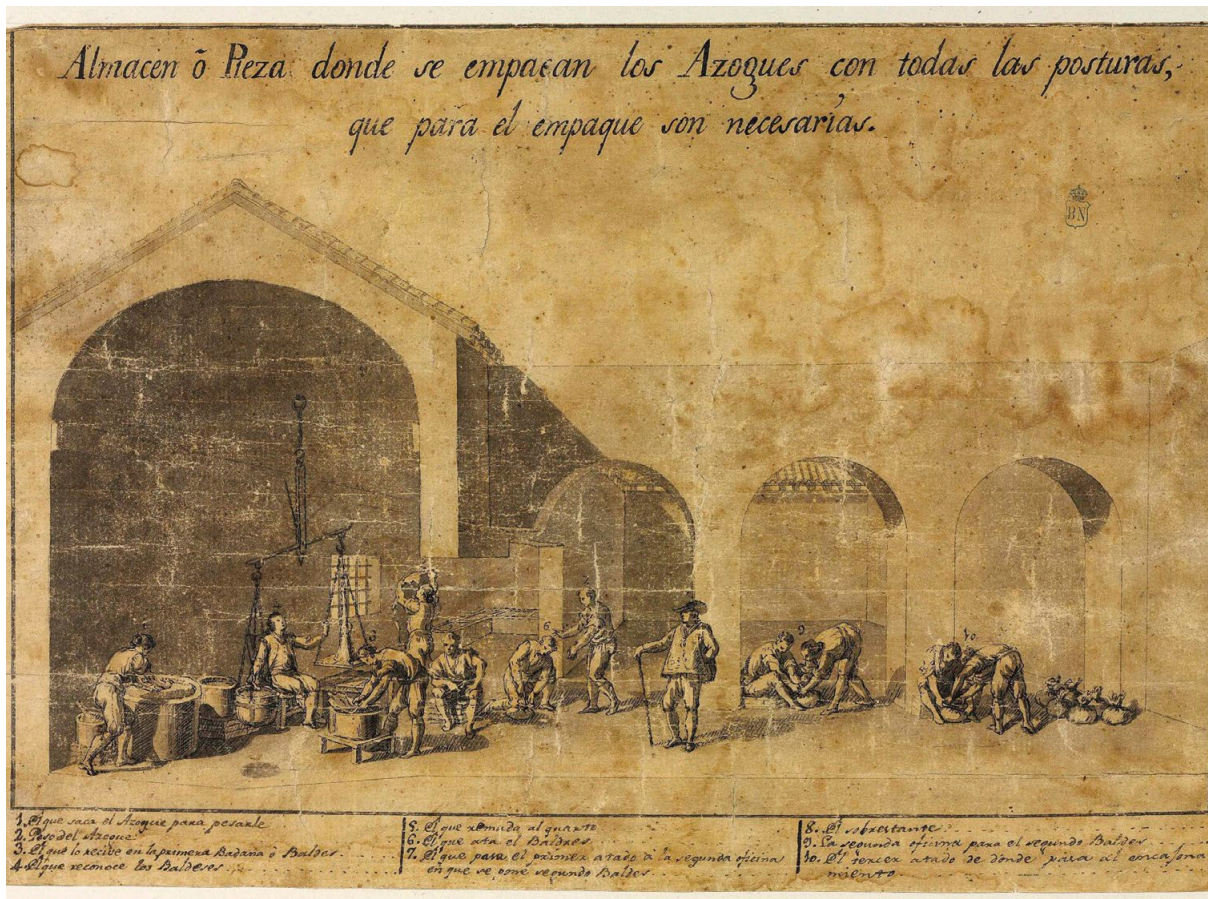 Almacen õ Pieza donde se empacan los Azogues con todas las posturas,
que para el empaque son necesarias.
BN
1. El que saca el Azogue para pesarle
2. Peso del Azogue
3. El que lo recibe en la primera Badana ò Baldes.
4. El que reconoce los Baldeses
5. El que remuda al quarto
6. El que ata el Baldres
7. El que pasa el primer atado à la segunda oficina
en que se pone segundo Baldes
8. El sobrestante
9. La segunda oficina para el segundo Baldes
10. El tercer atado de donde pasa al encajona
miento
6
9
10